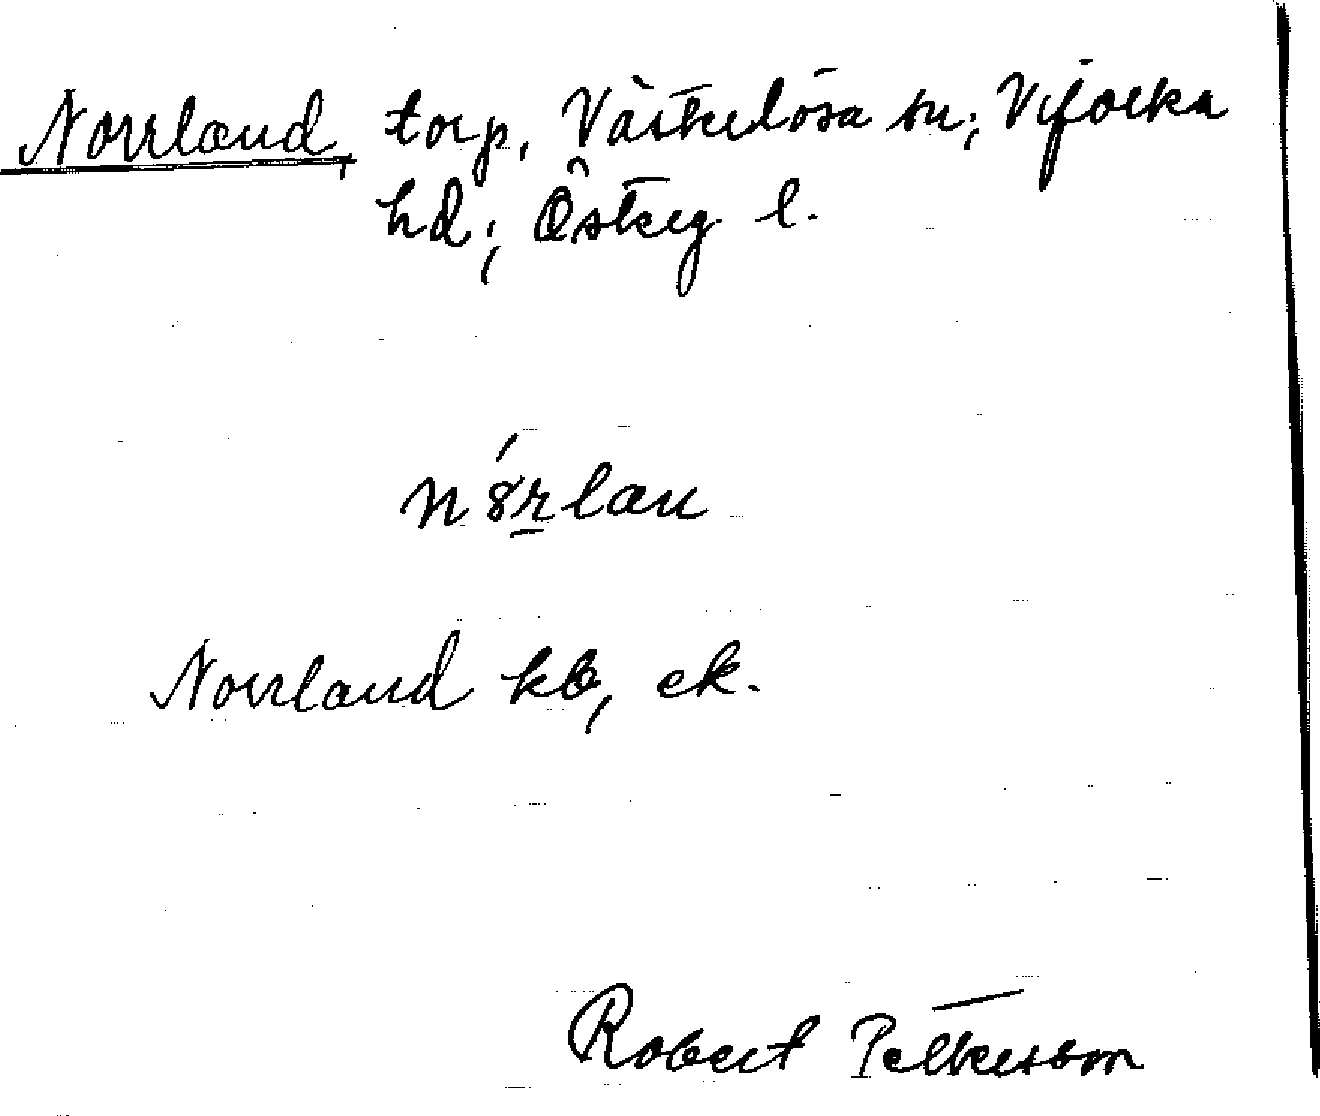 Norrland, torp, Västerlösa sn; Vifolka
hd; Österg l.
nórlan
Norrland kb, ek.
Robert Pettersson